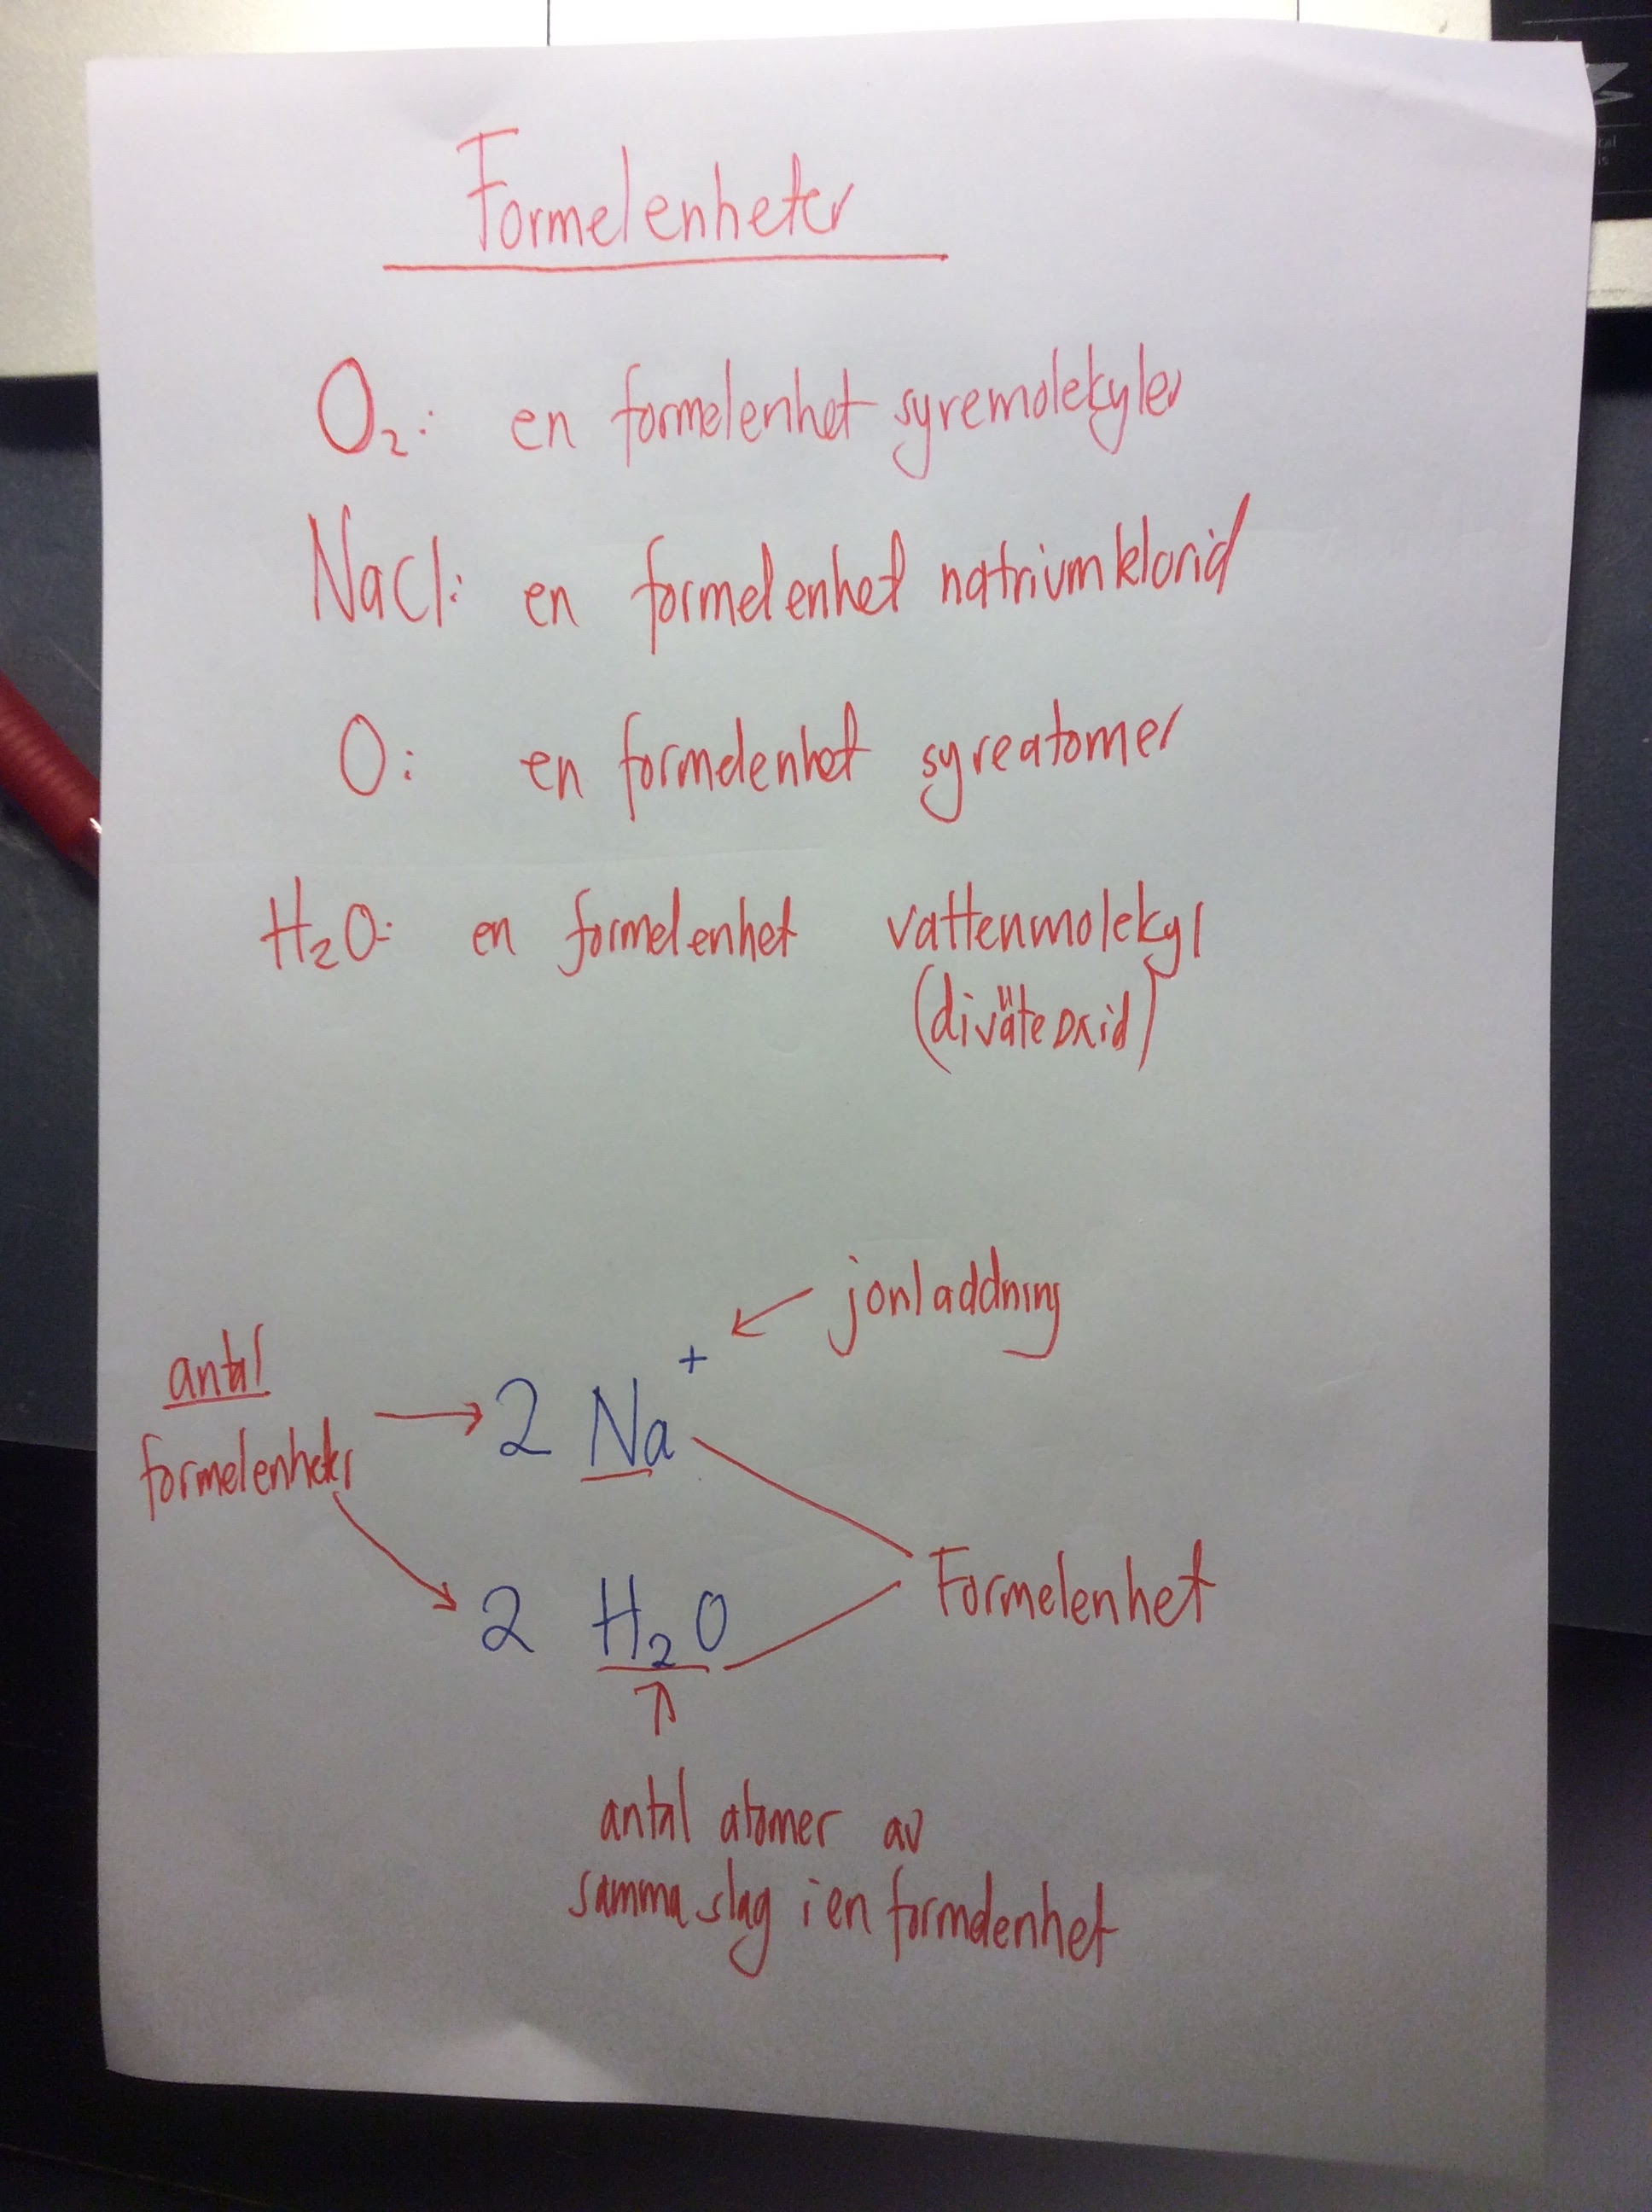 Formelenheter
O₂: en formelenhet syremolekyler
NaCl: en formelenhet natriumklorid
O: en formelenhet syreatomer
H₂O: en formelenhet vattenmolekyl
(diväteoxid)
jonladdning
antal
formelenheter
2 Na⁺
2 H₂O
Formelenhet
antal atomer av
samma slag i en formelenhet